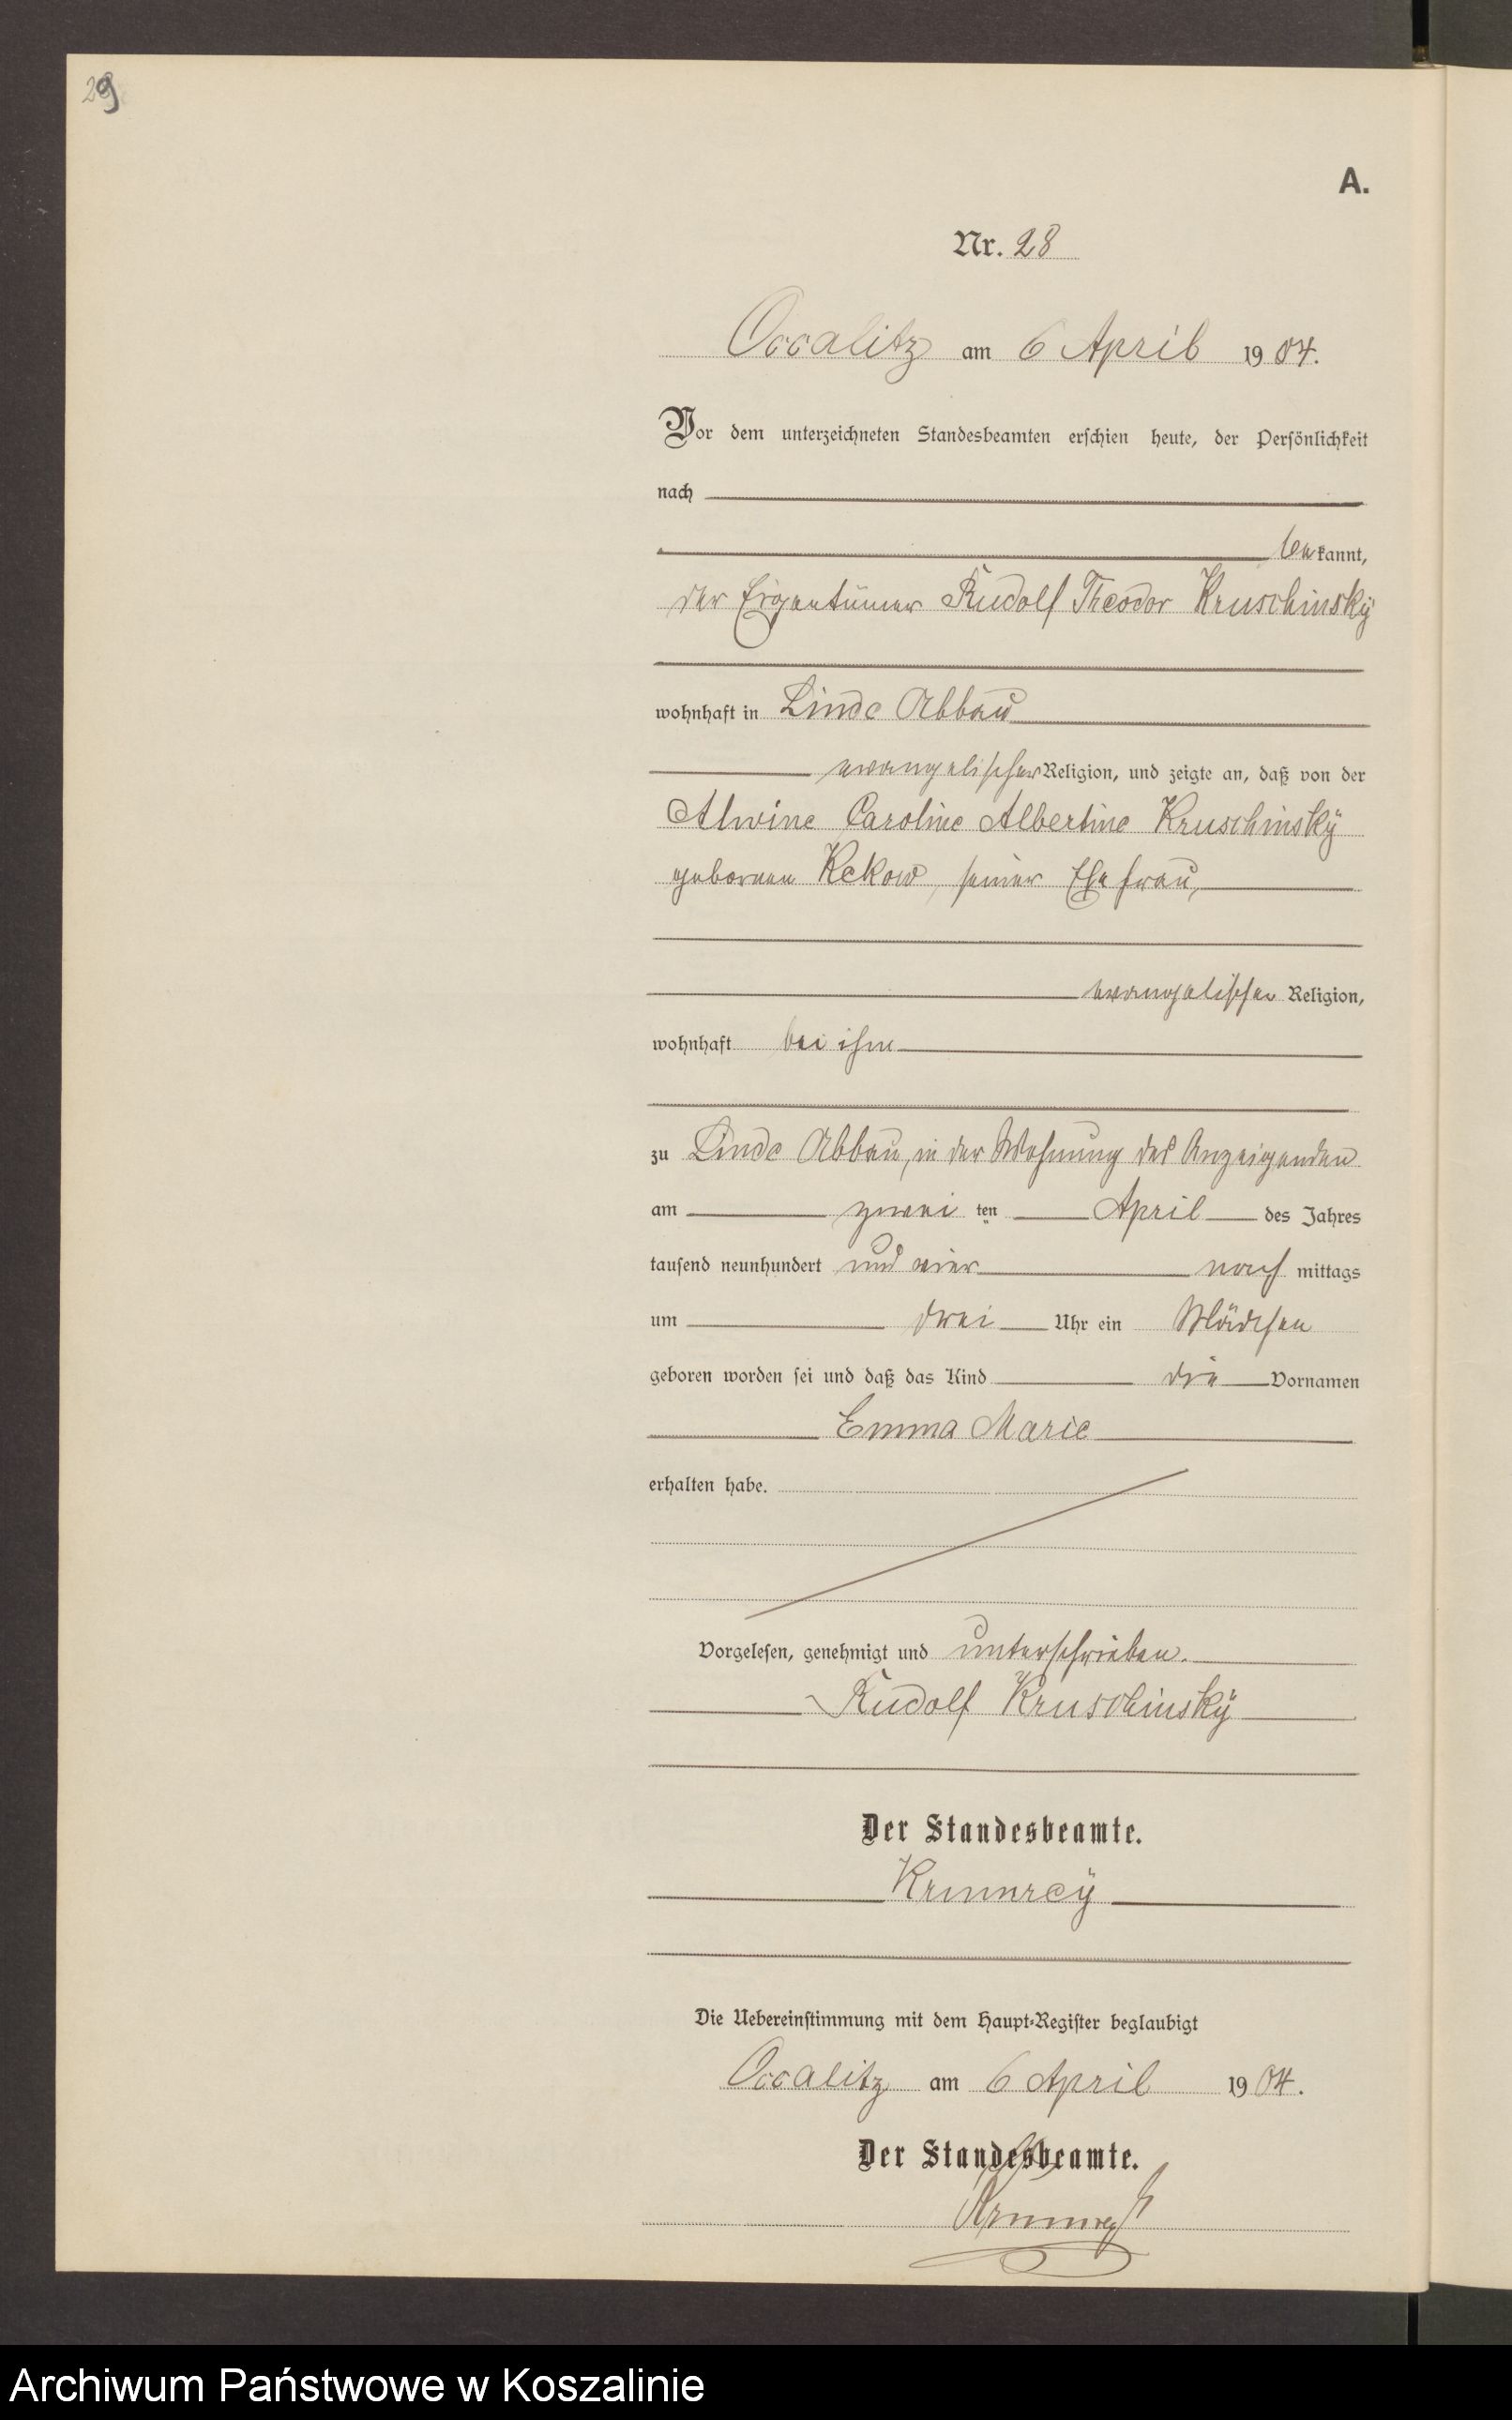 29
A.
Nr. 28
Occalitz am 6 April 1904.
Vor dem unterzeichneten Standesbeamten erschien heute, der Persönlichkeit
nach
bekannt,
der Eigentümer Rudolf Theodor Kruschinskÿ
wohnhaft in Linde Abbau
evangelischer Religion, und zeigte an, daß von der
Alwine Caroline Albertine Kruschinskÿ
geborenen Rekow, seiner Ehefrau,
evangelischer Religion,
wohnhaft bei ihm
zu Linde Abbau, in der Wohnung des Anzeigenden
am zweiten April des Jahres
tausend neunhundert und vier nachmittags
um drei Uhr ein Mädchen
geboren worden sei und daß das Kind die Vornamen
Emma Marie
erhalten habe.
Vorgelesen, genehmigt und unterschrieben.
Rudolf Kruschinskÿ
Der Standesbeamte.
Krumreÿ
Die Uebereinstimmung mit dem Haupt-Register beglaubigt
Occalitz am 6 April 1904.
Der Standesbeamte.
Krumrey
Archiwum Państwowe w Koszalinie